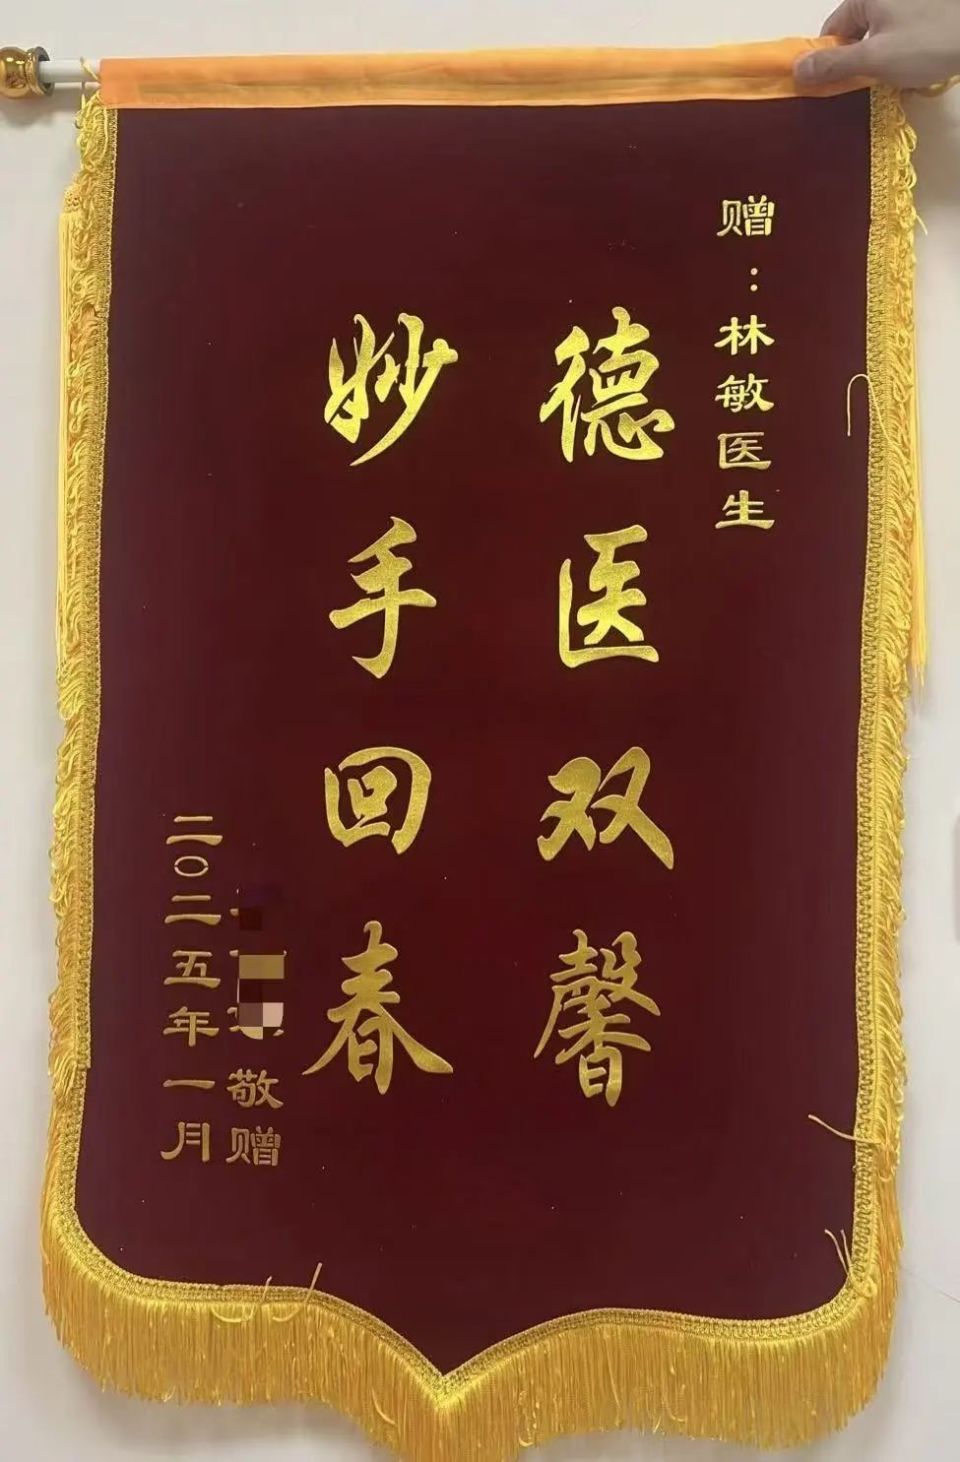 赠：林敏医生
德医双馨
妙手回春
敬赠
二〇二五年一月